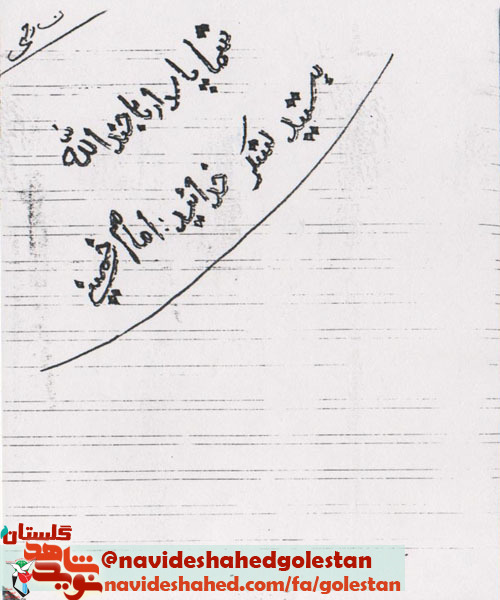 شما پاسدار جند الله
لشکر خدائید: امام خمینی
گلستان
نوید شاهد
@navideshahedgolestan
navideshahed.com/fa/golestan